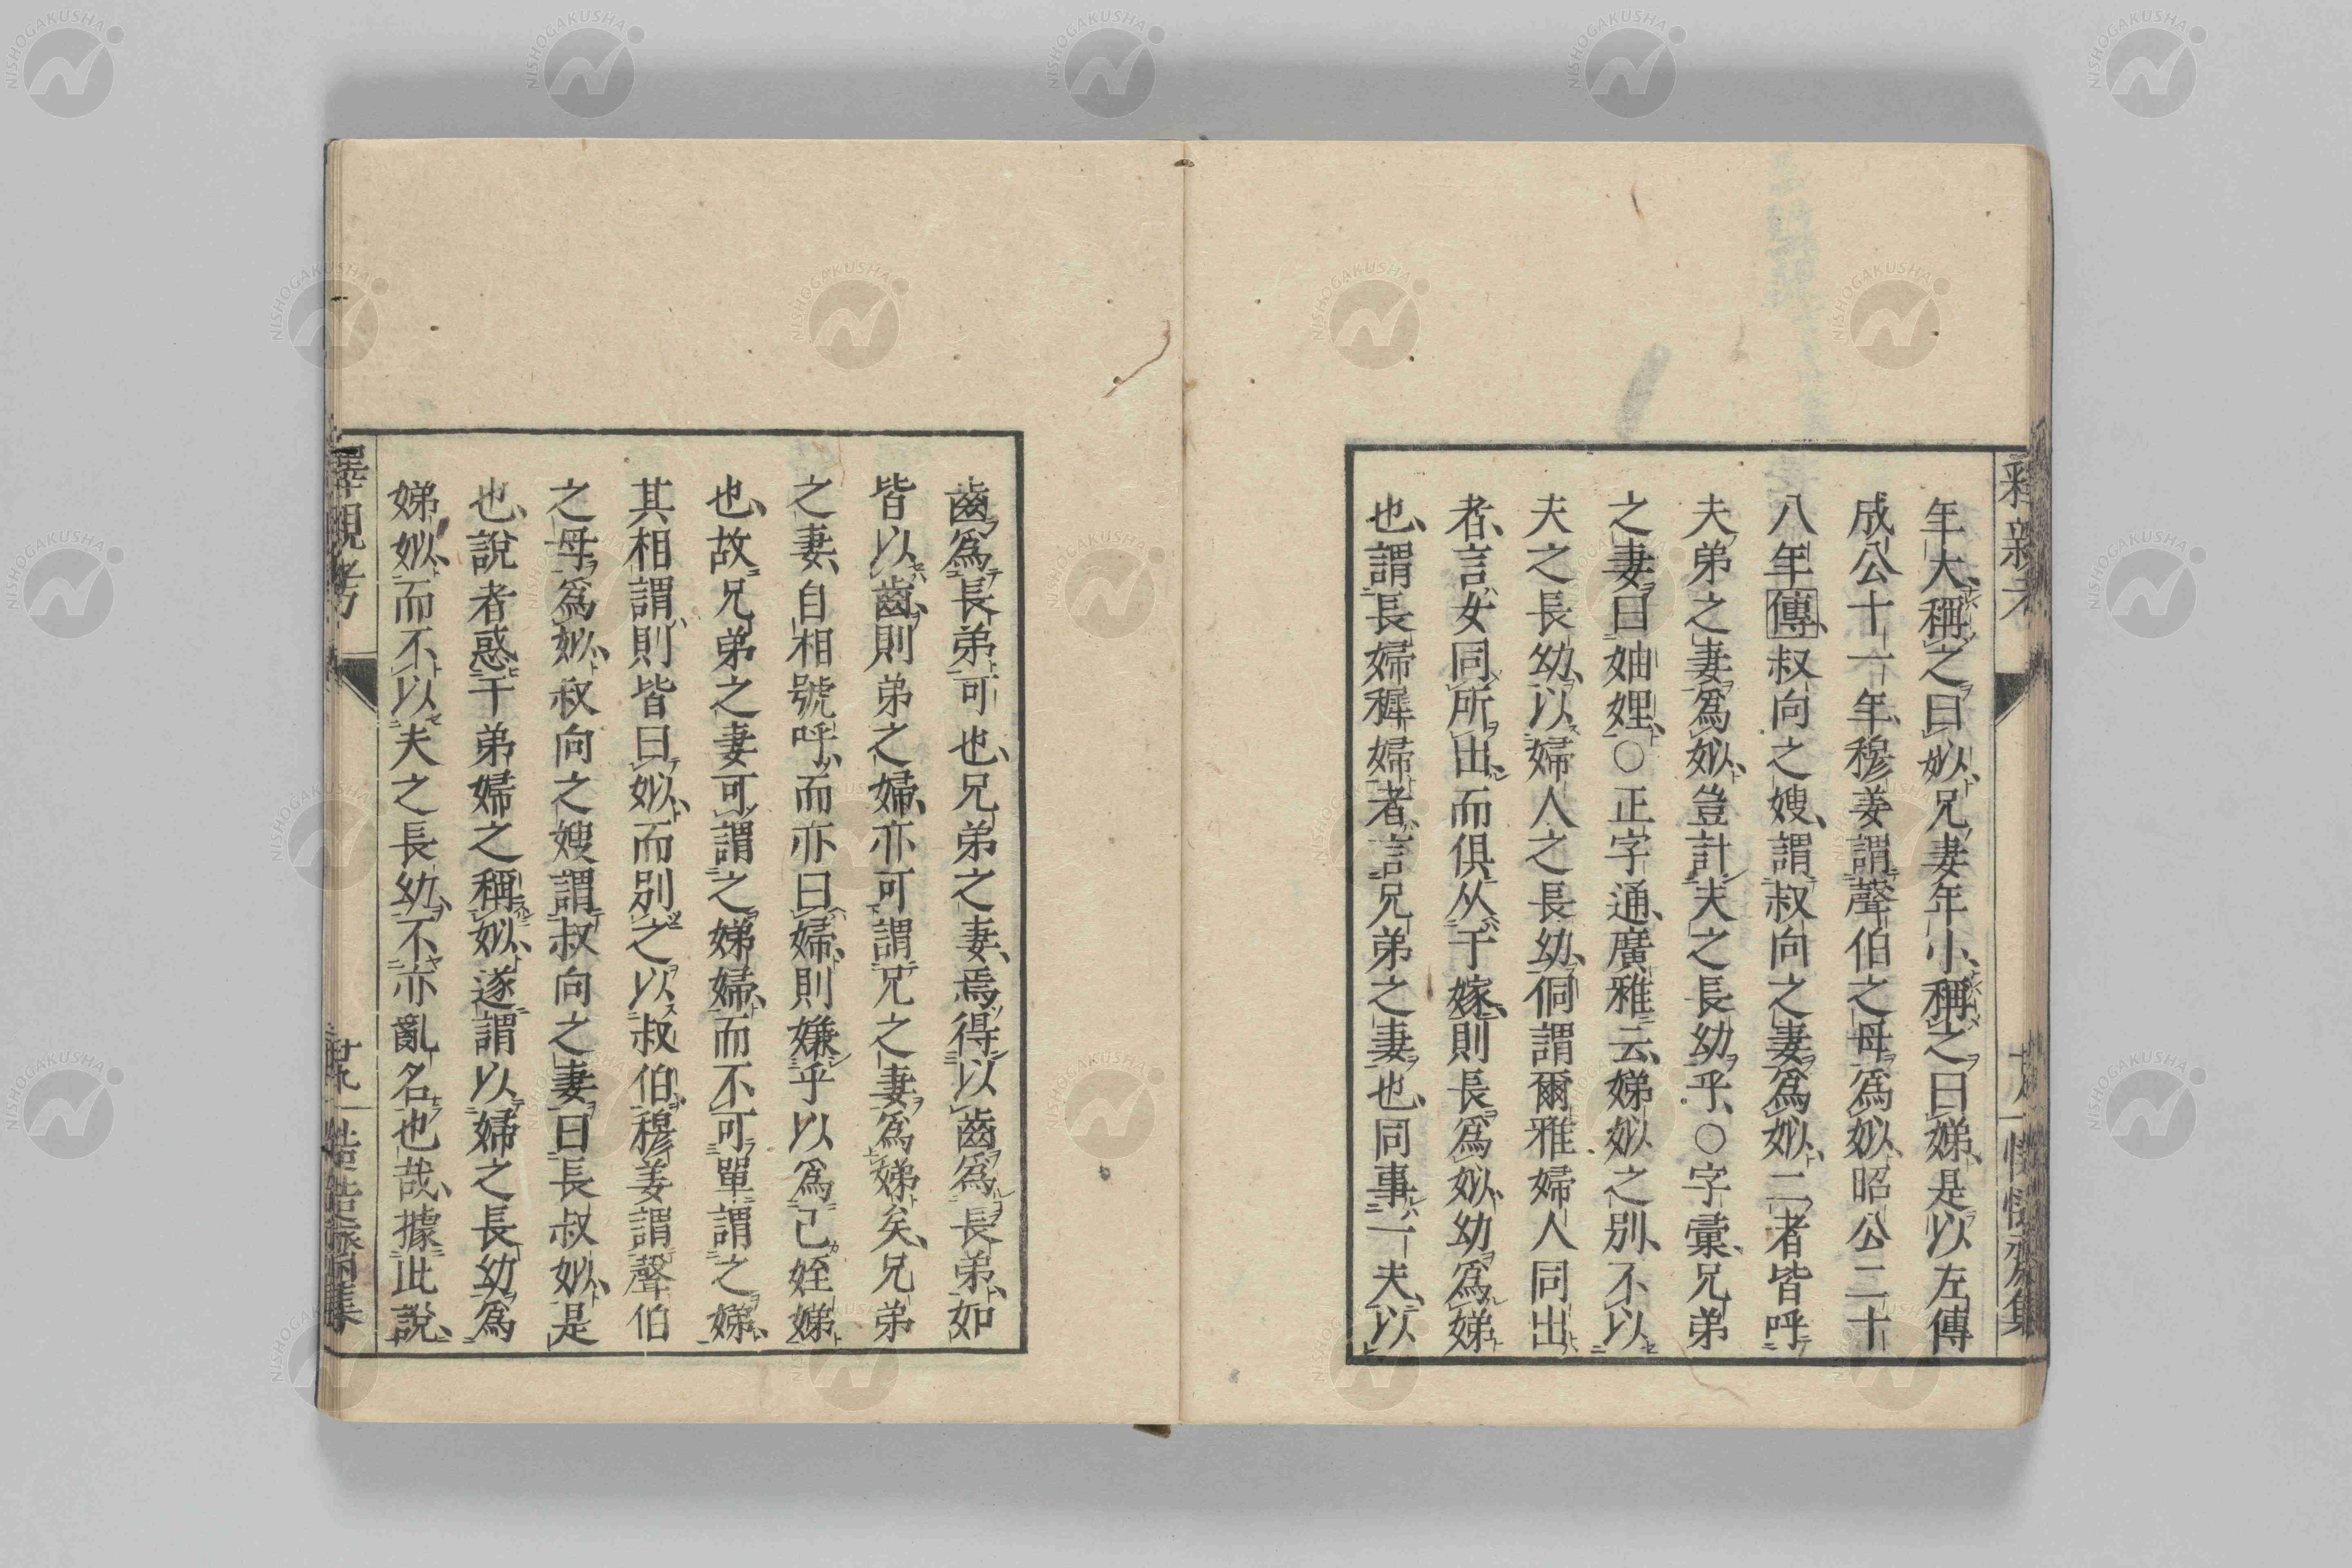 年大稱之曰姒兄妻年小稱之曰娣是以左傳
成公十一年穆姜謂聲伯之母爲姒昭公二十
八年傳叔向之嫂謂叔向之妻爲姒二者皆呼
夫弟之妻爲姒豈計夫之長幼乎○字彙兄弟
之妻曰妯娌○正字通廣雅云娣姒之別不以
夫之長幼以婦人之長幼侗謂爾雅婦人同出
者言女同所出而俱从于嫁則長爲姒幼爲娣
也謂長婦稺婦者言兄弟之妻也同事一夫以
齒爲長弟可也兄弟之妻焉得以齒爲長弟如
皆以齒則弟之婦亦可謂兄之妻爲娣矣兄弟
之妻自相號呼而亦曰婦則嫌乎以爲己姪娣
也故兄弟之妻可謂之娣婦而不可單謂之娣
其相謂則皆曰姒而別之以叔伯穆姜謂聲伯
之母爲姒叔向之嫂謂叔向之妻曰長叔姒是
也說者惑于弟婦之稱姒遂謂以婦之長幼爲
娣姒而不以夫之長幼不亦亂名也哉據此說
釋親考
廿九